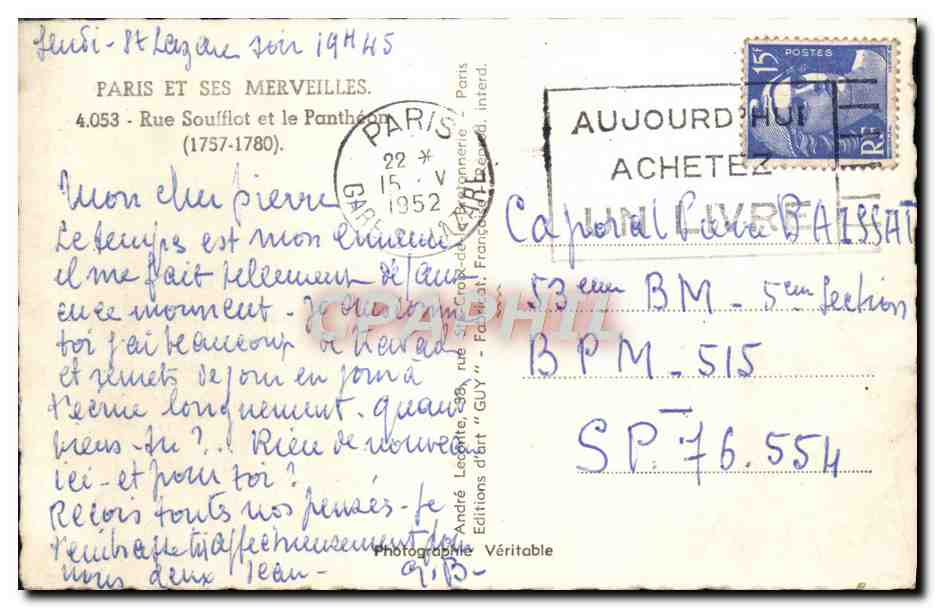 Jeudi - St Lazare soir 19H45
PARIS ET SES MERVEILLES.
4.053 - Rue Soufflot et le Panthéon
(1757-1780).
Mon cher pierre
Le temps est mon ennemi
il me fait tellement défaut
en ce moment - Je
toi j'ai beaucoup de travail
et remets de jour en jour à
t'écrire longuement. quand
viens-tu ?... Rien de nouveau
ici - et pour toi ?
Reçois toutes nos pensés - Je
t'embrasse affectueusement pour
nous deux Jean -
G. B -
André Leconte, 38, rue Ste-Croix-de-la-Bretonnerie - Paris
Editions d'art "GUY" - Fabricat. Française - Reprod. interd.
Photographie Véritable
PARIS
22 *
15 - V
1952
GARE ST LAZARE
AUJOURD'HUI
ACHETEZ
UN LIVRE
POSTES
15F
RF
Caporal BAISSAT
53 eme BM - 5 eme Section
BPM - 515
SP. 76.554
CPAPHIL